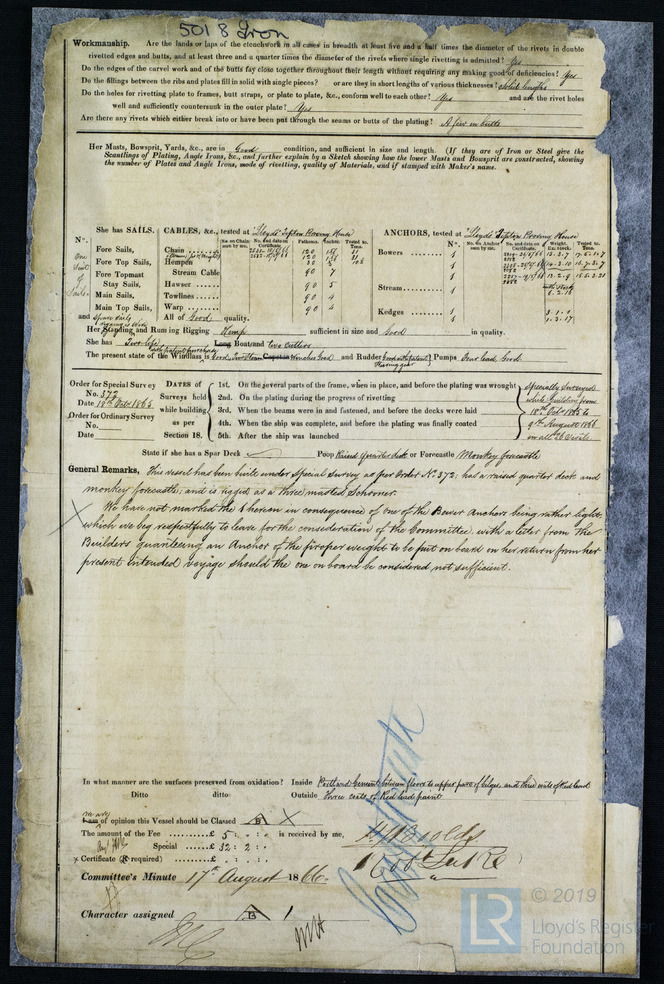 5018 Iron
Workmanship. Are the lands or laps of the clenchwork in all cases in breadth at least five and a half times the diameter of the rivets in double
rivetted edges and butts, and at least three and a quarter times the diameter of the rivets where single rivetting is admitted? Yes
Do the edges of the carvel work and of the butts fay close together throughout their length without requiring any making good of deficiencies? Yes
Do the fillings between the ribs and plates fill in solid with single pieces? or are they in short lengths of various thicknesses? Solid lengths
Do the holes for rivetting plate to frames, butt straps, or plate to plate, &c., conform well to each other? Yes and are the rivet holes
well and sufficiently countersunk in the outer plate? Yes
Are there any rivets which either break into or have been put through the seams or butts of the plating? A few in butts
Her Masts, Bowsprit, Yards, &c., are in Good condition, and sufficient in size and length. (If they are of Iron or Steel give the
Scantlings of Plating, Angle Irons, &c., and further explain by a Sketch showing how the lower Masts and Bowsprit are constructed, showing
the number of Plates and Angle Irons, mode of rivetting, quality of Materials, and if stamped with Maker's name.
She has SAILS. CABLES, &c., tested at Lloyds Tipton Proving House ANCHORS, tested at Lloyds Tipton Proving House
No. No. on Chain Fathoms. Tested to Tons. No. Weight. Ex. stock. Tested to Tons.
One Fore Sails, Chain 120 Bowers 1
Suit Fore Top Sails, Hempen 1
of Fore Topmast Stream Cable 90 7 1
Sails Stay Sails, Hawser 90 5 Stream 1
Main Sails, Towlines 90 4 1
Main Top Sails, Warp 90 4 Kedges 1
and All of Good quality. 1
Her Standing and Running Rigging Hemp sufficient in size and Good in quality.
She has Two life Long Boat and two cutters
The present state of the Windlass is Good Capstan Winches Good and Rudder Good with patent Pumps Four lead Good
Steering gear
Order for Special Survey
No. 372
Date 18th Octr 1865
Order for Ordinary Survey
No.
Date
DATES of Surveys held while building as per Section 18.
1st. On the several parts of the frame, when in place, and before the plating was wrought
2nd. On the plating during the progress of rivetting
3rd. When the beams were in and fastened, and before the decks were laid
4th. When the ship was complete, and before the plating was finally coated
5th. After the ship was launched
Specially Surveyed
while building from
18th Octr 1865 to
9th August 1866
in all 26 visits
State if she has a Spar Deck Poop Raised Quarter deck or Forecastle Monkey forecastle
General Remarks, This vessel has been built under Special Survey as per Order No. 372: has a raised quarter deck and
monkey forecastle; and is rigged as a three masted Schooner.
We have not marked the A hereon in consequence of one of the Bower Anchors being rather light:
which we beg respectfully to leave for the consideration of the Committee, with a letter from the
Builders guaranteeing an Anchor of the proper weight to be put on board on her return from her
present intended voyage should the one on board be considered not sufficient.
In what manner are the surfaces preserved from oxidation? Inside Portland Cement between floors to upper part of bilges, and three coats of Red lead
Ditto ditto: Outside three coats of Red lead paint
We are of opinion this Vessel should be Classed B X
The amount of the Fee £ 5 : : is received by me,
Special £ 32 : 2 :
Certificate (if required) £ : :
Committee's Minute 17th August 1866.
Character assigned B 1
© 2019
LR
Lloyd's Register
Foundation